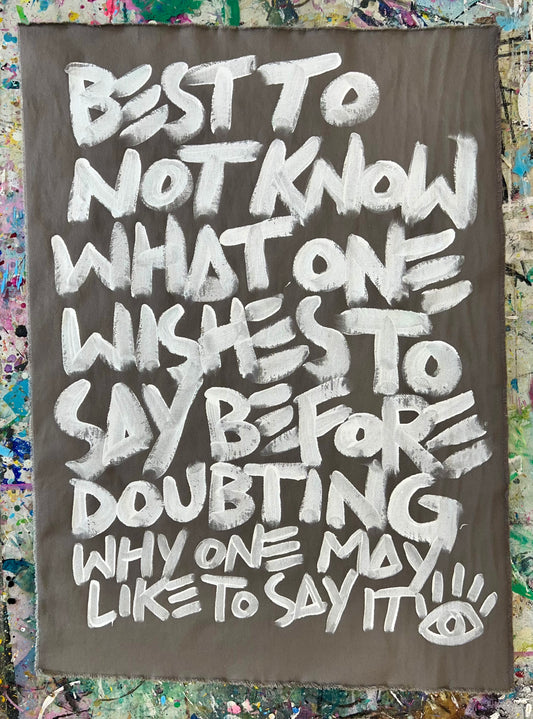 BEST TO
NOT KNOW
WHAT ONE
WISHES TO
SAY BEFORE
DOUBTING
WHY ONE MAY
LIKE TO SAY IT